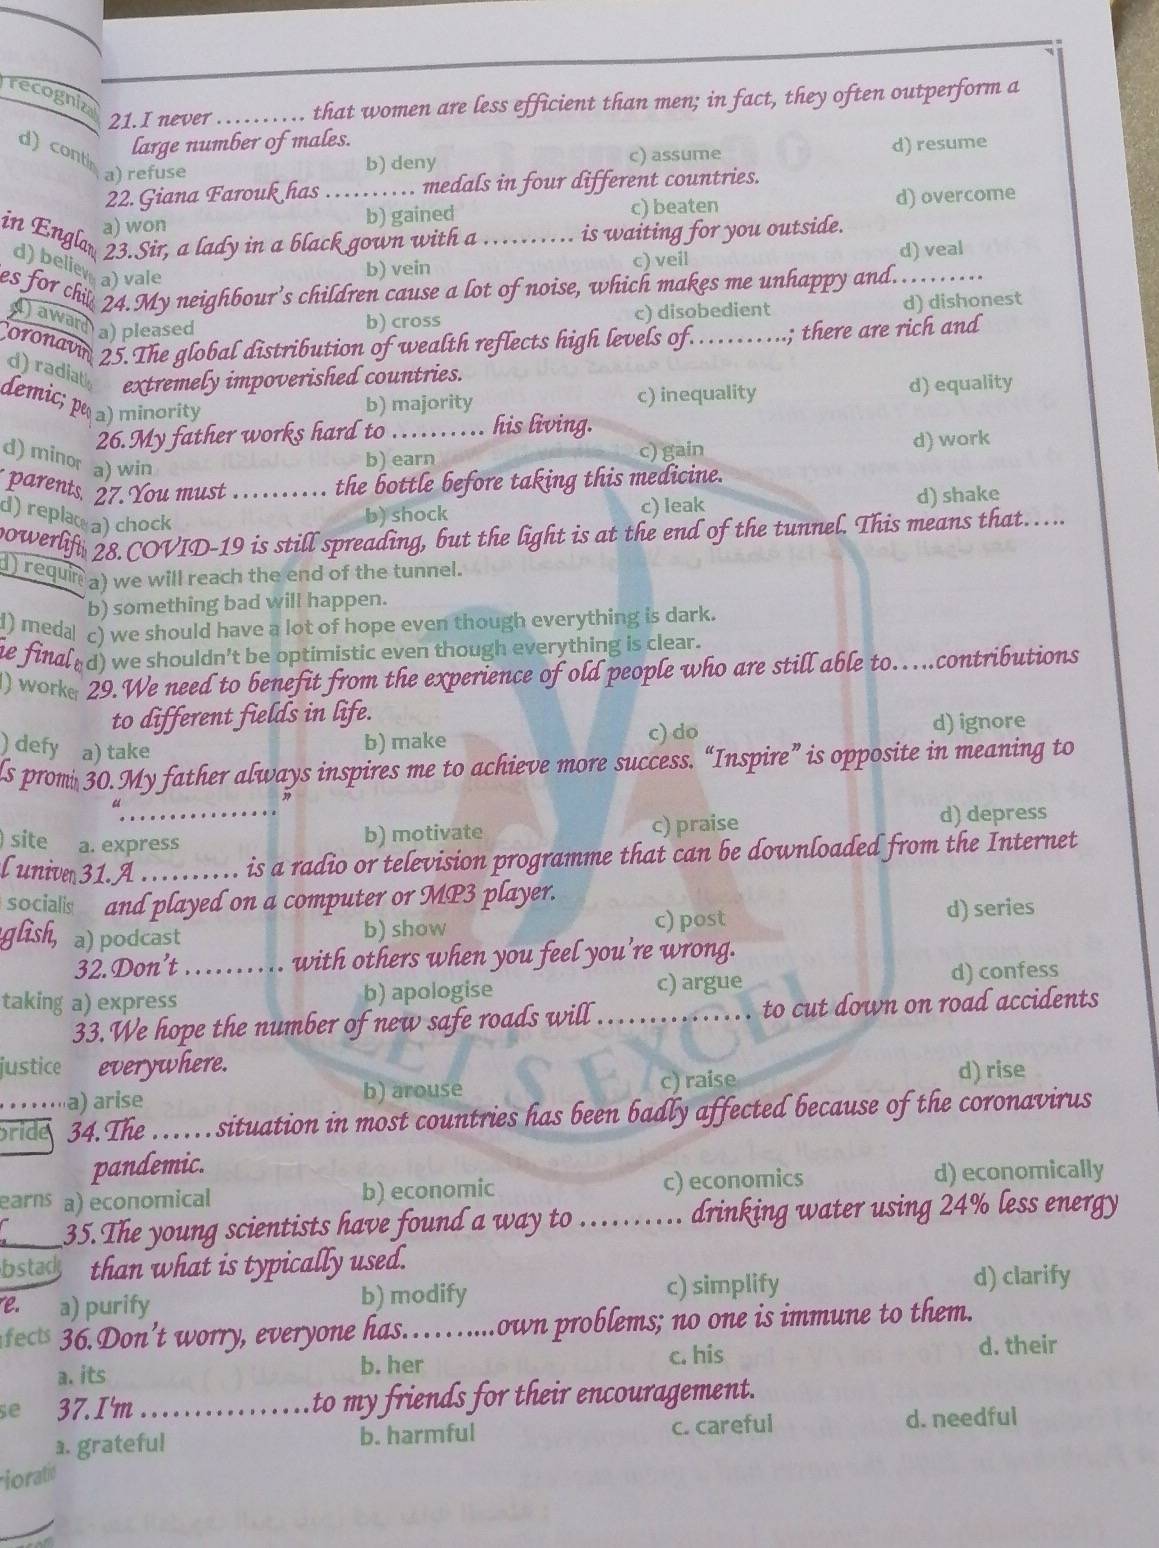 21.I never .......... that women are less efficient than men; in fact, they often outperform a
large number of males.
a) refuse b) deny c) assume d) resume
22.Giana Farouk has .......... medals in four different countries.
a) won b) gained c) beaten d) overcome
23.Sir, a lady in a black gown with a .......... is waiting for you outside.
a) vale b) vein c) veil d) veal
24.My neighbour's children cause a lot of noise, which makes me unhappy and..........
a) pleased b) cross c) disobedient d) dishonest
25.The global distribution of wealth reflects high levels of...........; there are rich and
extremely impoverished countries.
a) minority b) majority c) inequality d) equality
26.My father works hard to .......... his living.
a) win b) earn c) gain d) work
27.You must .......... the bottle before taking this medicine.
a) chock b) shock c) leak d) shake
28.COVID-19 is still spreading, but the light is at the end of the tunnel. This means that.....
a) we will reach the end of the tunnel.
b) something bad will happen.
c) we should have a lot of hope even though everything is dark.
d) we shouldn't be optimistic even though everything is clear.
29.We need to benefit from the experience of old people who are still able to.....contributions
to different fields in life.
a) take b) make c) do d) ignore
30.My father always inspires me to achieve more success. "Inspire" is opposite in meaning to
"................."
a. express b) motivate c) praise d) depress
31.A .......... is a radio or television programme that can be downloaded from the Internet
and played on a computer or MP3 player.
a) podcast b) show c) post d) series
32.Don't .......... with others when you feel you're wrong.
a) express b) apologise c) argue d) confess
33.We hope the number of new safe roads will ................ to cut down on road accidents
everywhere.
a) arise b) arouse c) raise d) rise
34.The ......situation in most countries has been badly affected because of the coronavirus
pandemic.
a) economical b) economic c) economics d) economically
35.The young scientists have found a way to .......... drinking water using 24% less energy
than what is typically used.
a) purify b) modify c) simplify d) clarify
36.Don't worry, everyone has..........own problems; no one is immune to them.
a. its b. her c. his d. their
37.I'm .................to my friends for their encouragement.
a. grateful b. harmful c. careful d. needful
LET'S EXCEL